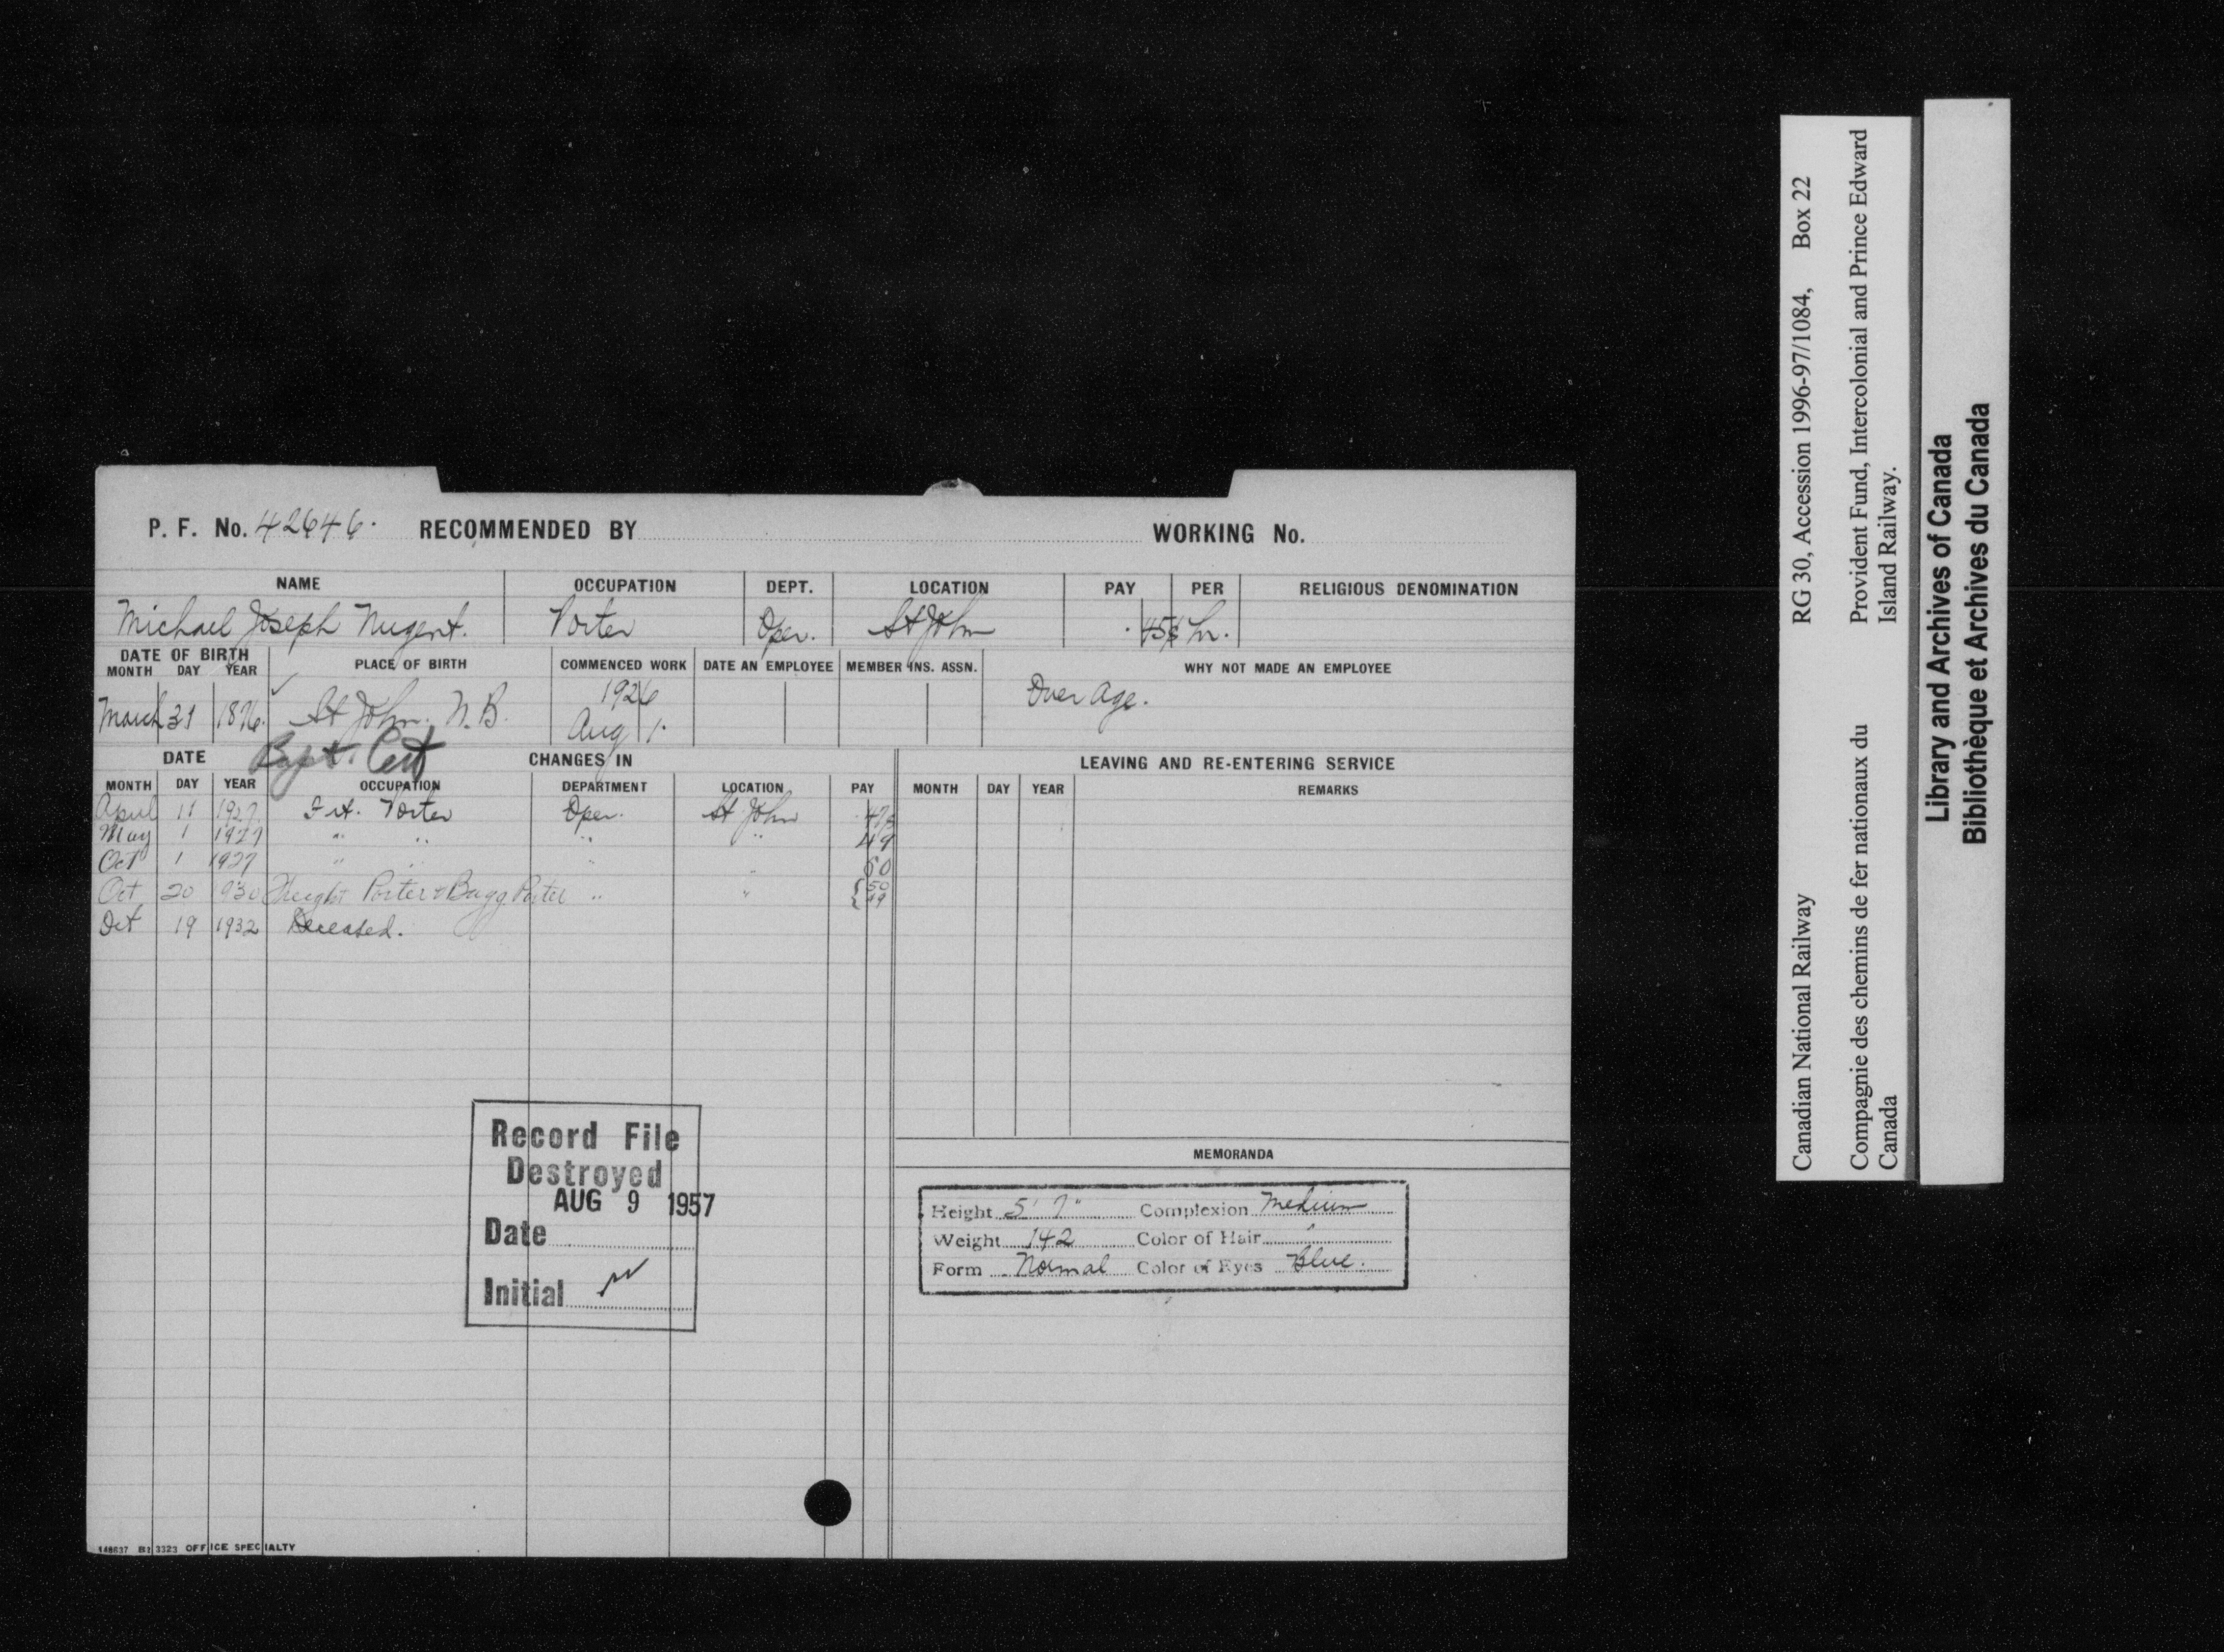 P. F. No. 42646. RECOMMENDED BY WORKING No.
NAME OCCUPATION DEPT. LOCATION PAY PER RELIGIOUS DENOMINATION
Michael Joseph Nugent. Porter Oper. St John .45¢ hr.
DATE OF BIRTH
MONTH DAY YEAR PLACE OF BIRTH COMMENCED WORK DATE AN EMPLOYEE MEMBER INS. ASSN. WHY NOT MADE AN EMPLOYEE
1926
March 31 1876. St John. N.B. Aug 1. Over Age.
Bapt. Cert
DATE CHANGES IN LEAVING AND RE-ENTERING SERVICE
MONTH DAY YEAR OCCUPATION DEPARTMENT LOCATION PAY MONTH DAY YEAR REMARKS
April 11 1927 Frt. Porter Oper. St John
May 1 1927 " " " " 49
Oct 1 1927 " " " "
Oct 20 1930 Freight Porter & Bagg Porter " " 50
49
Oct 19 1932 Deceased.
Record File
Destroyed
AUG 9 1957
Date
Initial
MEMORANDA
Height 5' 7" Complexion Medium
Weight 142 Color of Hair
Form Normal Color of Eyes Blue.
148637 B1 3323 OFFICE SPECIALTY
Canadian National Railway RG 30, Accession 1996-97/1084, Box 22
Compagnie des chemins de fer nationaux du Provident Fund, Intercolonial and Prince Edward
Canada Island Railway.
Library and Archives of Canada
Bibliothèque et Archives du Canada